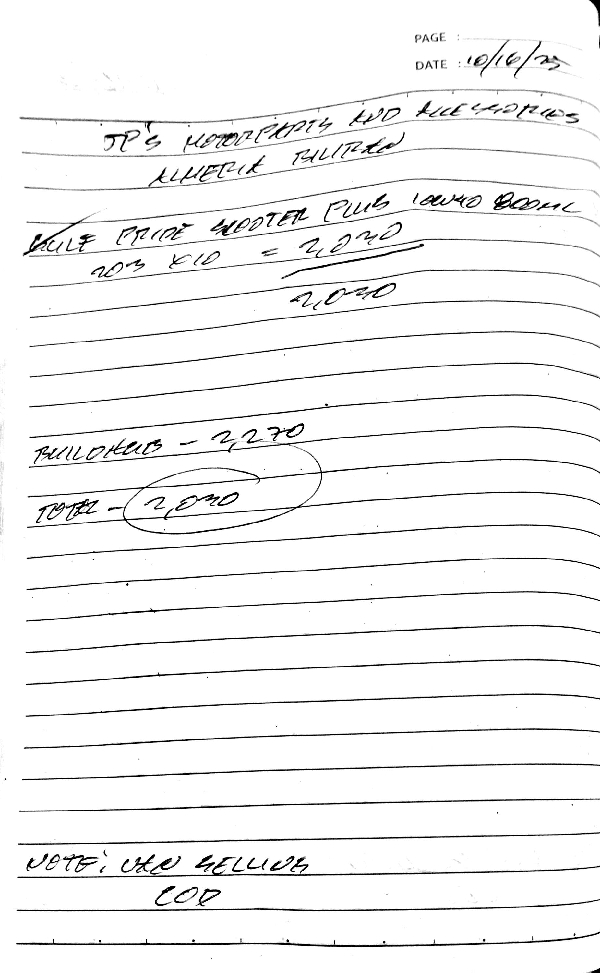 PAGE :
DATE : 10/16/25
JP'S MOTORPARTS AND ACCESSORIES
ALMERIA BILIRAN
GULF PRIDE SCOOTER PLUS 10W40 800ML
203 x10 = 2,030
2,030
BUILDHUB - 2,270
TOTAL - 2,030
NOTE: VAN SELLING
COD